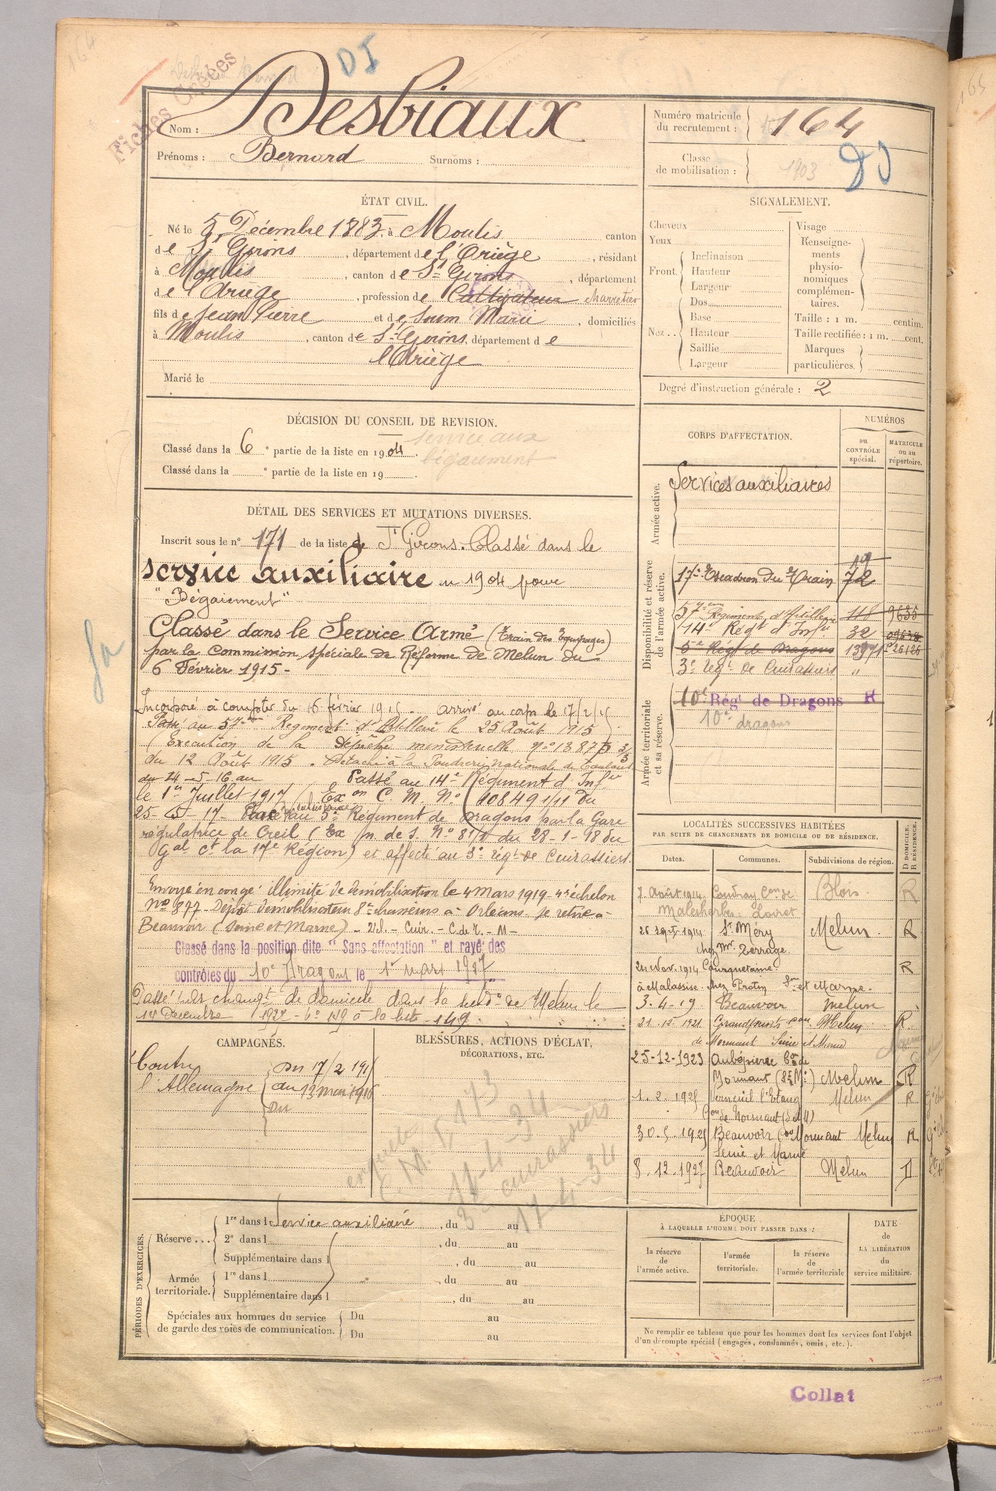 164
DI
Fiches Créées
Nom : Desbiaux
Prénoms : Bernard Surnoms :
Numéro matricule du recrutement : 164
Classe de mobilisation : 1903
DI
ÉTAT CIVIL.
Né le 5 Décembre 1883, à Moulis canton
de St Girons, département de l'Ariège, résidant
à Moulis, canton de St Girons, département
de l'Ariège, profession de Cultivateur charretier
fils de Jean Pierre et de Soum Marie, domiciliés
à Moulis, canton de St Girons, département de
l'Ariège
Marié le
SIGNALEMENT.
Cheveux
Yeux
Front. Inclinaison
Hauteur
Largeur
Nez... Dos
Base
Hauteur
Saillie
Largeur
Visage
Renseignements physionomiques complémentaires.
Taille : 1 m. centim.
Taille rectifiée : 1 m. cent.
Marques particulières.
Degré d'instruction générale : 2
DÉCISION DU CONSEIL DE REVISION.
service aux
Classé dans la 6e partie de la liste en 1904. bégaiement
Classé dans la e partie de la liste en 19
DÉTAIL DES SERVICES ET MUTATIONS DIVERSES.
Inscrit sous le n° 171 de la liste de St Girons. Classé dans le
service auxiliaire en 1904 pour
"Bégaiement"
Classé dans le Service Armé (Train des Équipages)
par la Commission spéciale de Réforme de Melun du
6 Février 1915-
Incorporé à compter du 16 février 1915. arrivé au corps le 17/2/15
Passé au 57me Régiment d'Artillerie le 25 Août 1915
(Exécution de la Dépêche ministérielle n° 13875 3/3
du 12 Août 1915. Détaché à la Poudrerie nationale de Toulouse
du 24-5-16 au Passé au 14e Régiment d'Infie
le 1er Juillet 1917 (Exon C. M. No 10849 1/11 du
25-5-17- Passé au 5e Régiment de Dragons par la Gare
régulatrice de Creil (Ex on de s. No 81/ du 28-1-18 du
Gal Ct la 17e Région) et affecté au 3e régt de Cuirassiers.
Envoyé en congé illimité de démobilisation le 4 Mars 1919 4e échelon
No 877 Dépôt démobilisateur 8e chasseurs à Orléans se retire à
Beauvoir (Seine et Marne)
Classé dans la position dite "Sans affectation" et rayé des
contrôles du 10e Dragons le 1er mars 1927
Passé par changt de domicile dans la subdon de Melun le
1er Décembre 1927 - No 159 à la liste 149.
CORPS D'AFFECTATION.
NUMÉROS
DU CONTRÔLE spécial.
MATRICULE ou au répertoire.
Armée active.
Services auxiliaires
Disponibilité et réserve de l'armée active.
17e Escadron du Train 72
57me Régiment d'Artillerie 9635
14e Régt d'Infie 32
5e Régt de Dragons
3e régt de Cuirassiers "
Armée territoriale et sa réserve.
10e Régt de Dragons R
10e dragons
LOCALITÉS SUCCESSIVES HABITÉES
PAR SUITE DE CHANGEMENTS DE DOMICILE OU DE RÉSIDENCE.
Dates. Communes. Subdivisions de région. D DOMICILE, R RÉSIDENCE.
7 Août 1914 Coudray Con de Blois R
Malesherbes Loiret
St Méry Melun R
chez Mr Terrage
24 Nov. 1914 Courquetaine R
à Malassise, Seine et Marne
3-4-19 Beauvoir Melun
21-12-1921 Grandpuits par Melun R
Mormant Seine et Marne
25-12-1923 Aubepierre Con de
Mormant (S et M) Melun R
1.2.1925 Verneuil l'Etang Melun R
Con de Mormant (S et M)
30.5.1925 Beauvoir Con Mormant Melun R
Seine et Marne
8.12.1927 Beauvoir Melun D
CAMPAGNES.
Contre l'Allemagne
du 17/2 1915
au
du
BLESSURES, ACTIONS D'ÉCLAT,
DÉCORATIONS, ETC.
17-4-34
3e cuirassiers
17-4-34
PÉRIODES D'EXERCICES.
Réserve... 1re dans l Service auxiliaire, du au
2e dans l , du au
Supplémentaire dans l , du au
Armée territoriale. 1re dans l , du au
Supplémentaire dans l , du au
Spéciales aux hommes du service de garde des voies de communication. Du au
Du au
ÉPOQUE
À LAQUELLE L'HOMME DOIT PASSER DANS :
la réserve de l'armée active.
l'armée territoriale.
la réserve de l'armée territoriale
DATE de LA LIBÉRATION du service militaire.
Ne remplir ce tableau que pour les hommes dont les services font l'objet
d'un décompte spécial (engagés, condamnés, omis, etc.).
Collat